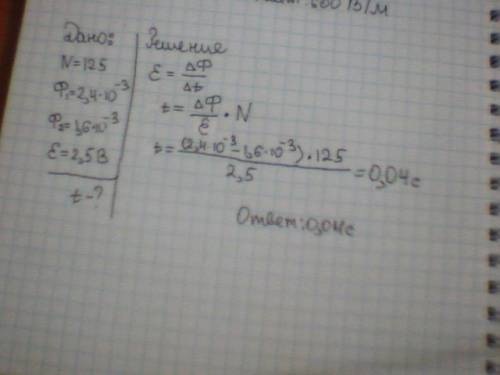 600 В/м
Дано:
N=125
Ф₁=2,4·10⁻³
Ф₂=1,6·10⁻³
Ɛ=2,5В
t-?
Решение
Ɛ = ΔФ/Δt
t = ΔФ/Ɛ · N
t = (2,4·10⁻³-1,6·10⁻³)·125/2,5 = 0,04с
Ответ: 0,04с